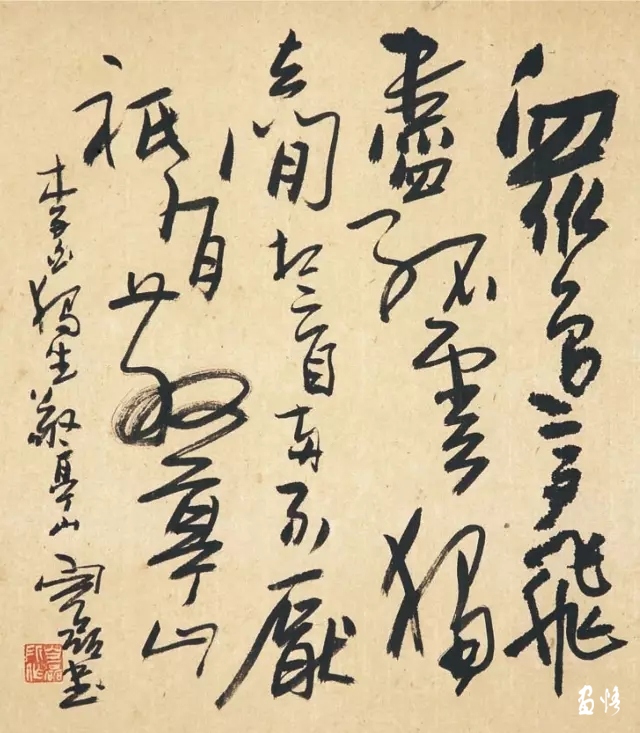 眾鳥高飛
盡孤雲獨
去閒相看兩不厭
祇有敬亭山
李白獨坐敬亭山 磊書